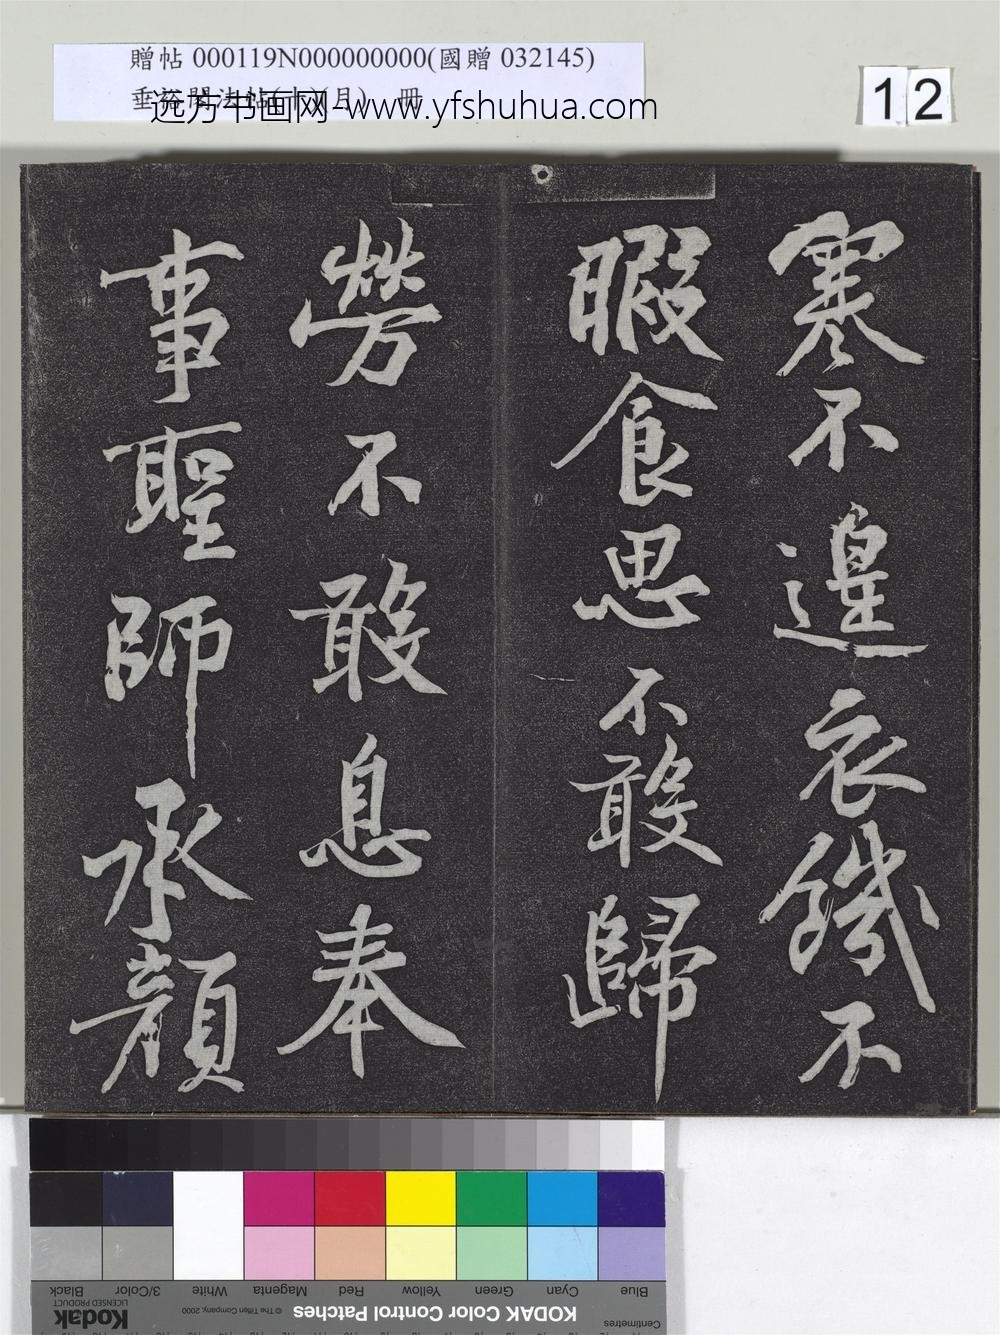 贈帖 000119N000000000(國贈 032145)
远方书画网-www.yfshuhua.com
12
寒不遑衣饑不
暇食思不敢歸
勞不敢息奉
事聖師承顏
Blue Cyan Green Yellow Red Magenta White 3/Color Black
KODAK Color Control Patches
© The Tiffen Company, 2000
Kodak
LICENSED PRODUCT
Centimetres